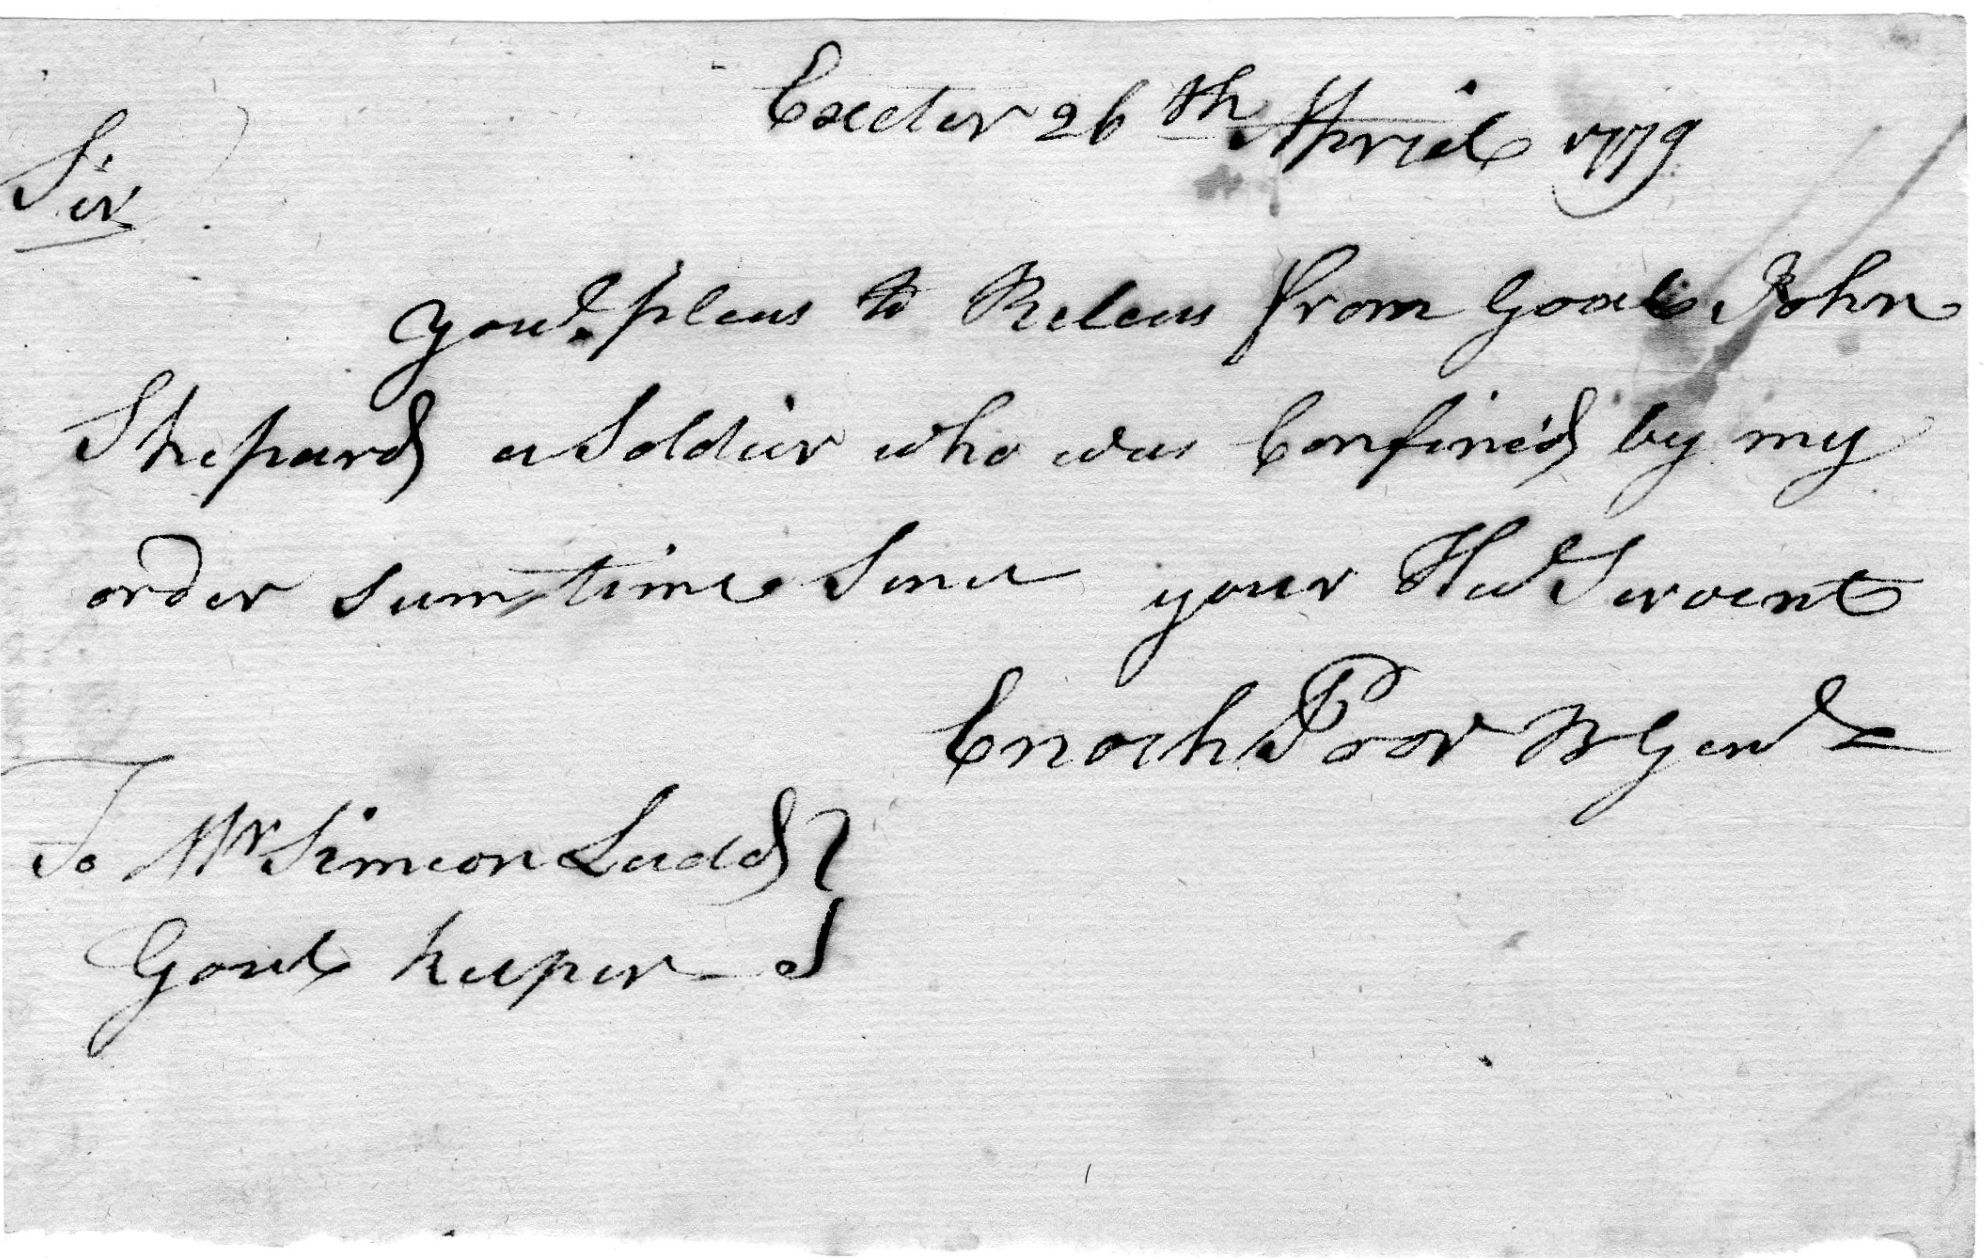 Exeter 26th April 1779
Sir
youl pleas to Releas from Goal John
Shepard a Soldier who was Confined by my
order sum time Since your Hul Servent
Enoch Poor B Genl
To Mr Simeon Ladd
Goal keeper